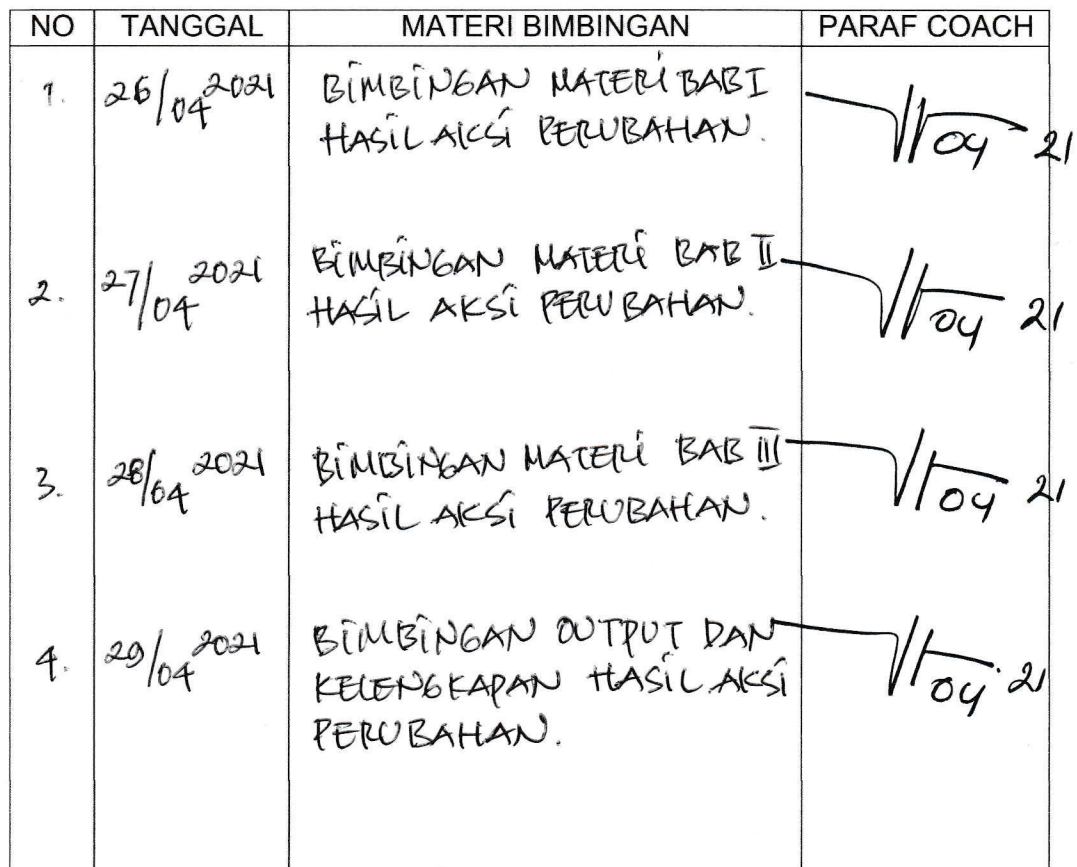 NO TANGGAL MATERI BIMBINGAN PARAF COACH
1. 26/04 2021 BIMBINGAN MATERI BAB I
HASIL AKSI PERUBAHAN.
04 21
2. 27/04 2021 BIMBINGAN MATERI BAB II
HASIL AKSI PERUBAHAN.
04 21
3. 28/04 2021 BIMBINGAN MATERI BAB III
HASIL AKSI PERUBAHAN.
04 21
4. 29/04 2021 BIMBINGAN OUTPUT DAN
KELENGKAPAN HASIL AKSI
PERUBAHAN.
04 21